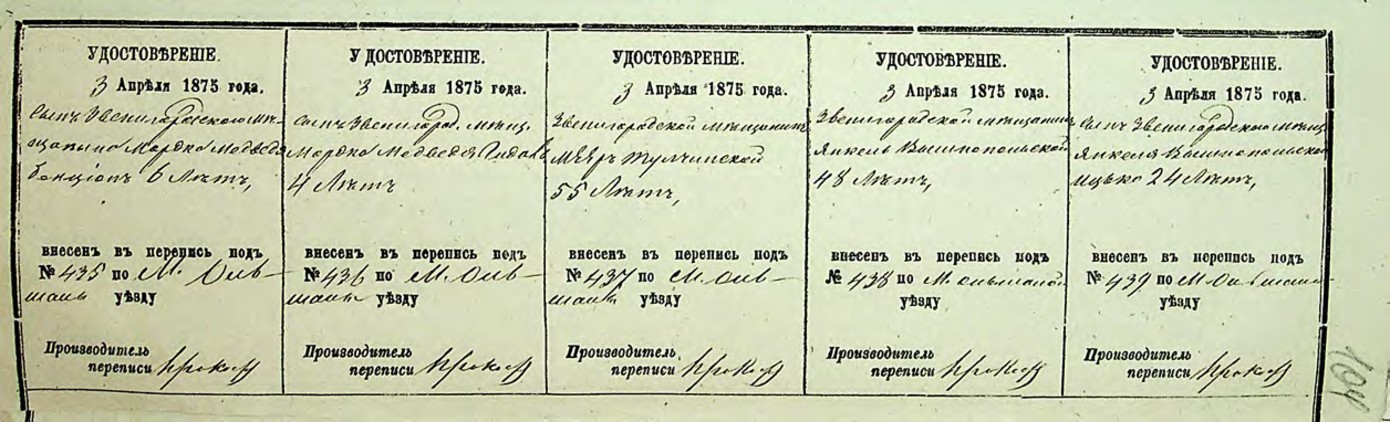 УДОСТОВѢРЕНІЕ.
3 Апрѣля 1875 года.
Сынъ Звенигородскаго мѣ-
щанина Мордка Медведя
Бенціонъ 6 Лѣтъ,
внесенъ въ перепись подъ
№ 435 по М. Оль-
шань уѣзду
Производитель
переписи
УДОСТОВѢРЕНІЕ.
3 Апрѣля 1875 года.
Сынъ Звенигород. мѣщ.
Мордка Медведя
4 Лѣтъ
внесенъ въ перепись подъ
№ 436 по М. Оль-
шань уѣзду
Производитель
переписи
УДОСТОВѢРЕНІЕ.
3 Апрѣля 1875 года.
Звенигородской мѣщанинъ
Меѣръ Тулчинской
55 Лѣтъ,
внесенъ въ перепись подъ
№ 437 по М. Оль-
шань уѣзду
Производитель
переписи
УДОСТОВѢРЕНІЕ.
3 Апрѣля 1875 года.
Звенигородской мѣщанинъ
Янкель Вышнопольской
48 Лѣтъ,
внесенъ въ перепись подъ
№ 438 по М. Ольшаной
уѣзду
Производитель
переписи
УДОСТОВѢРЕНІЕ.
3 Апрѣля 1875 года.
Сынъ Звенигородском мѣщ
Янкеля Вышнопольско
Ицько 24 Лѣтъ,
внесенъ въ перепись подъ
№ 439 по М.
уѣзду
Производитель
переписи
104